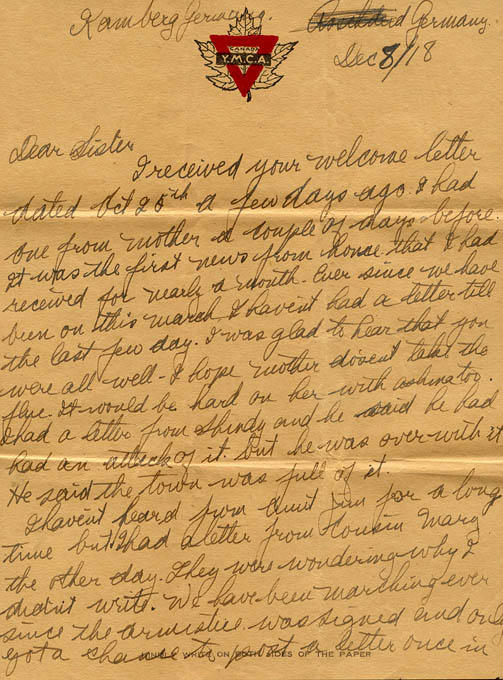 Kamberg Germany.
Germany.
CANADA
Y.M.C.A
Dec 8/18
Dear Sister
I received your welcome letter
dated Oct 25th a few days ago. I had
one from mother a couple of days before.
It was the first news from home that I had
received for nearly a month. Ever since we have
been on this march I havent had a letter till
the last few day. I was glad to hear that you
were all well - I hope mother dosent take the
flue. It would be hard on her with asthma too.
I had a letter from Shindy and he said he had
had an attack of it. but he was over with it
He said the town was full of it.
I havent heard from aunt Jim for a long
time but I had a letter from Cousin Mary
the other day. They were wondering why I
didn't write. We have been marching ever
since the armistice was signed and only
got a chance to post a letter once in
WRITE ON BOTH SIDES OF THE PAPER